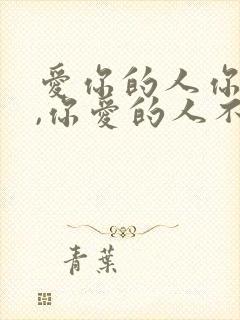 爱你的人你
,你爱的人不
青葉